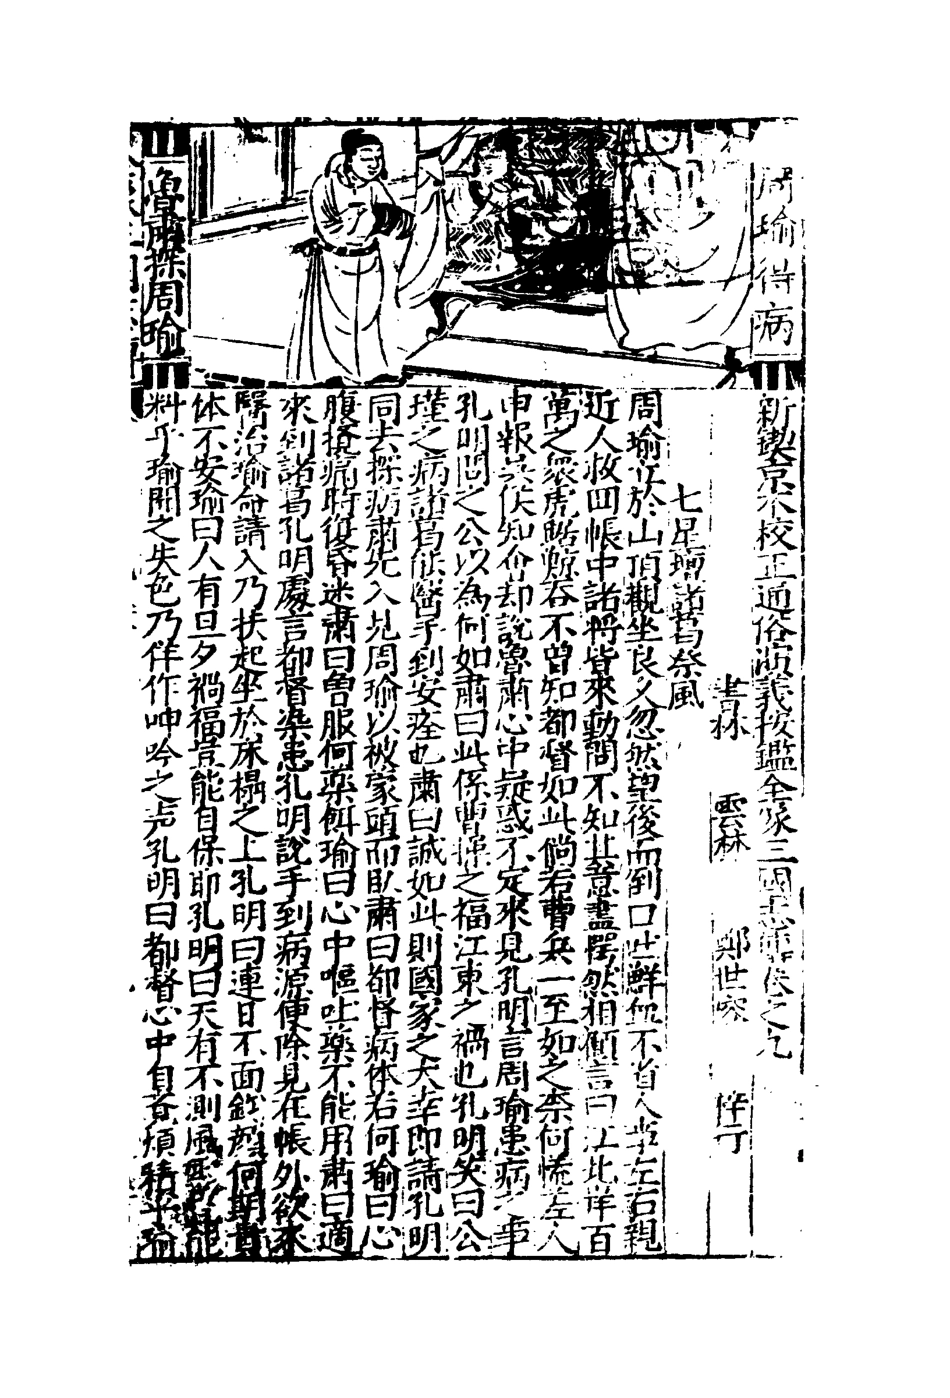 周瑜得病
魯肅探周瑜
新鋟京本校正通俗演義按鑑全像三國志傳卷之九
書林 雲林 鄭世容 梓行
七星壇諸葛祭風
周瑜立於山頂觀坐良久忽然望後而倒口吐鮮血不省人事左右親
近人救回帳中諸將皆來動問不知其意盡愕然相顧言曰江北岸百
萬之衆虎踞鯨吞不曽知都督如此倘若曹兵一至如之柰何慌差人
申報吳侯知會却說魯肅心中疑惑不定來見孔明言周瑜患病之事
孔明問之公以為何如肅曰此係曹操之福江東之禍也孔明笑曰公
瑾之病諸葛能醫手到安痊也肅曰誠如此則國家之大幸即請孔明
同去探病肅先入見周瑜以被蒙頭而臥肅曰都督病体若何瑜曰心
腹攪痛時復昏迷肅曰曽服何藥餌瑜曰心中嘔吐藥不能用肅曰適
來到諸葛孔明處言都督染患孔明說手到病源便除見在帳外欲來
醫治瑜命請入乃扶起坐於床榻之上孔明曰連日不面鈞顏何期貴
体不安瑜曰人有旦夕禍福豈能自保耶孔明曰天有不測風雲能
料乎瑜聞之失色乃佯作呻吟之声孔明曰都督心中自若煩積乎瑜